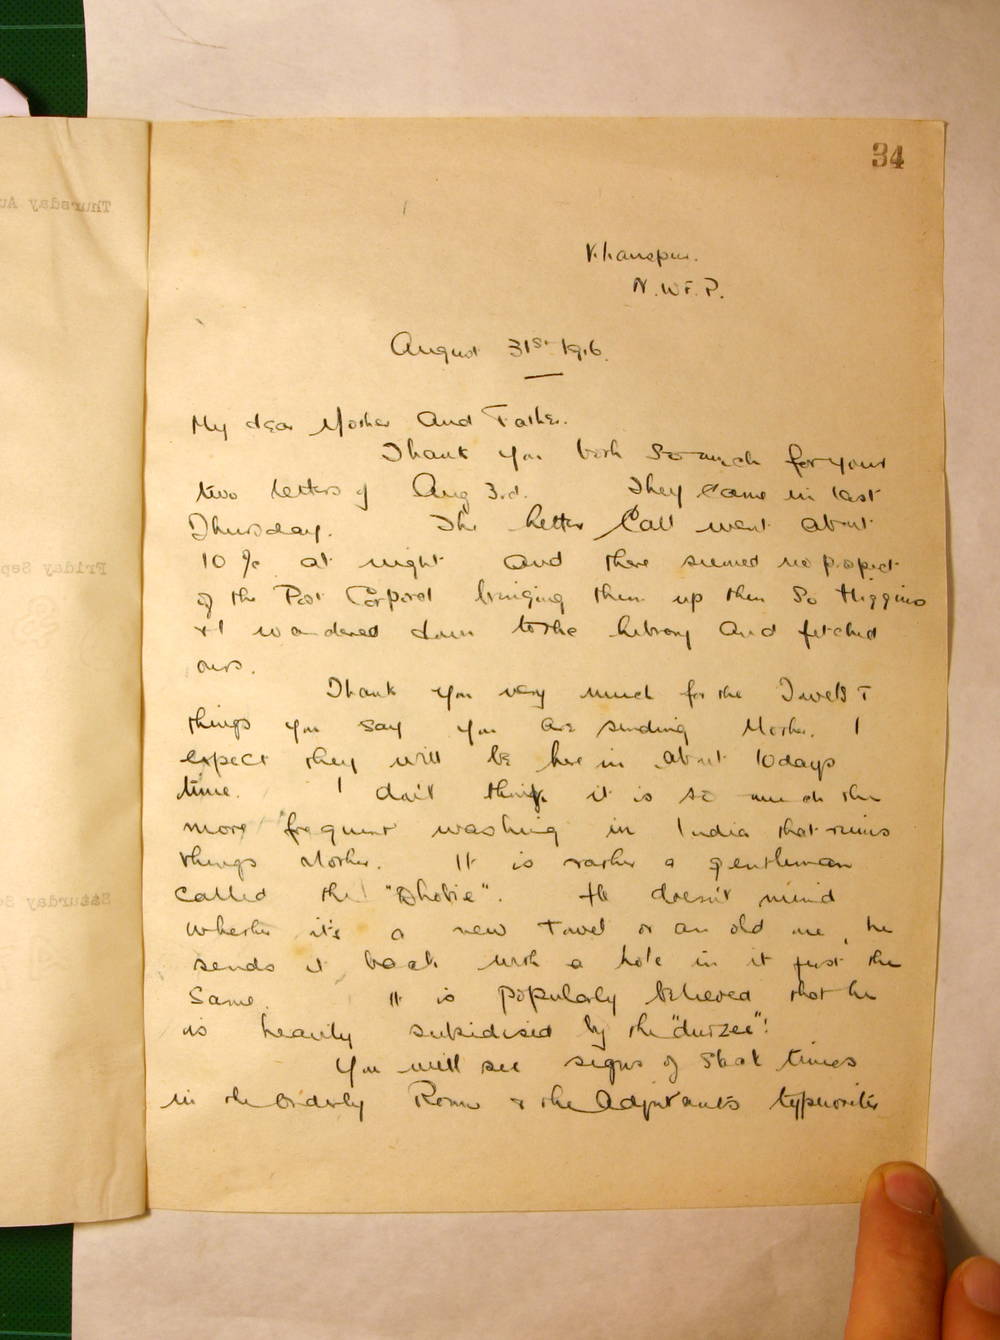 34
Thursday Au
Khanspur.
N.W.F.P.
August 31st 1916.
My dear Mother and Father.
Thank you both so much for your
two letters of Aug 3rd. They came in last
Thursday. The letter Call went about
10 % at night and there seemed no propect
of the Post Corporal bringing them up then So Higgins
+ I wandered down to the library and fetched
ours.
Thank you very much for the Towels +
things you say you are sending Mother. I
expect they will be here in about 10 days
time. I don't think it is so much the
more frequent washing in India that ruins
things Mother. It is rather a gentleman
called the "Dhobie". He doesn't mind
Friday Sep
whether it's a new Towel or an old one, he
sends it back with a hole in it just the
Same. It is popularly believed that he
is heavily subsidised by the "durzee"!
You will see signs of slack times
in the Orderly Room + the Adjutant's typewriter
Saturday Se